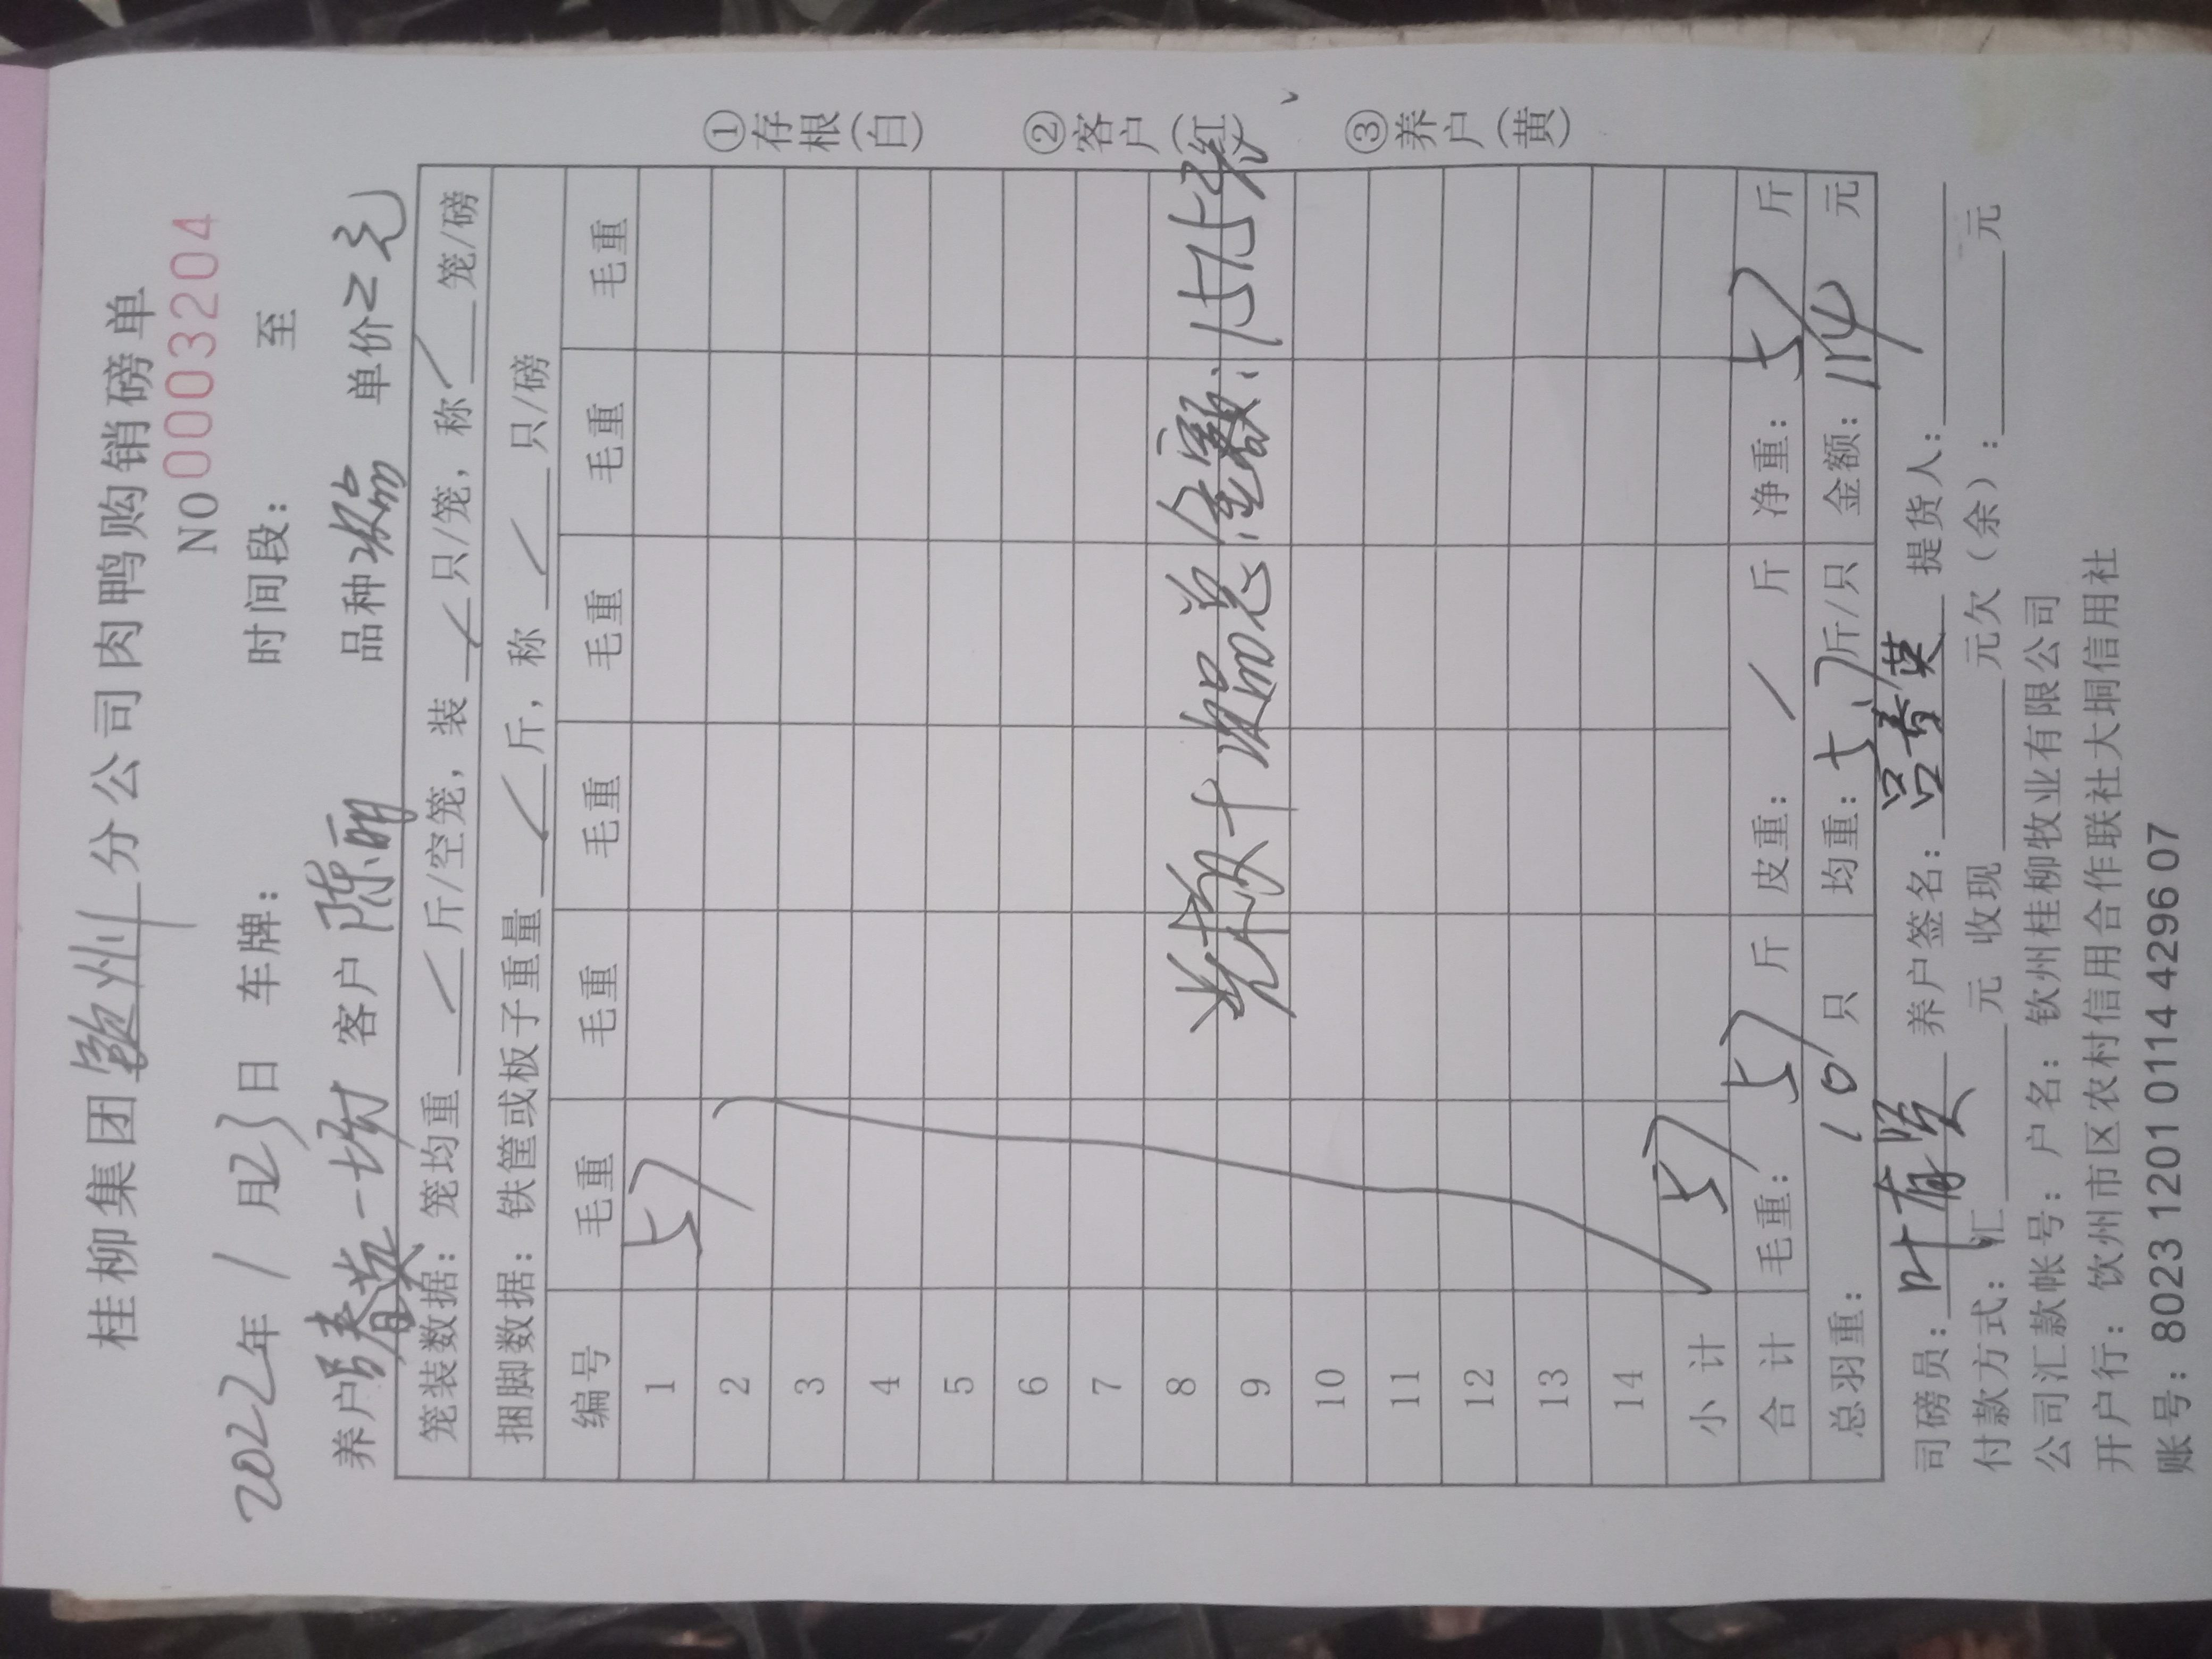 桂柳集团钦州分公司肉鸭购销磅单
NO 0003204
2022年1月23日 车牌： 时间段： 至
养户吕春英一场 客户陈丽 品种次品 单价2元
笼装数据：笼均重 斤/空笼，装 只/笼，称 笼/磅
捆脚数据：铁筐或板子重量 斤，称 只/磅
编号 毛重 毛重 毛重 毛重 毛重 毛重
1 57
2
3
4
5
6
7
8
9
次品总金额：1515元
10
11
12
13
14
小计 57
合计 毛重：57斤 皮重：/斤 净重：57斤
总羽重：10只 均重：5.7斤/只 金额：114元
司磅员：叶 养户签名：吕春英 提货人：
付款方式：汇 元 收现 元欠（余）： 元
公司汇款帐号：户名：钦州桂柳牧业有限公司
开户行：饮州市区农村信用合作联社大垌信用社
账号：8023 1201 0114 4296 07
①存根(白) ②客户(红) ③养户(黄)